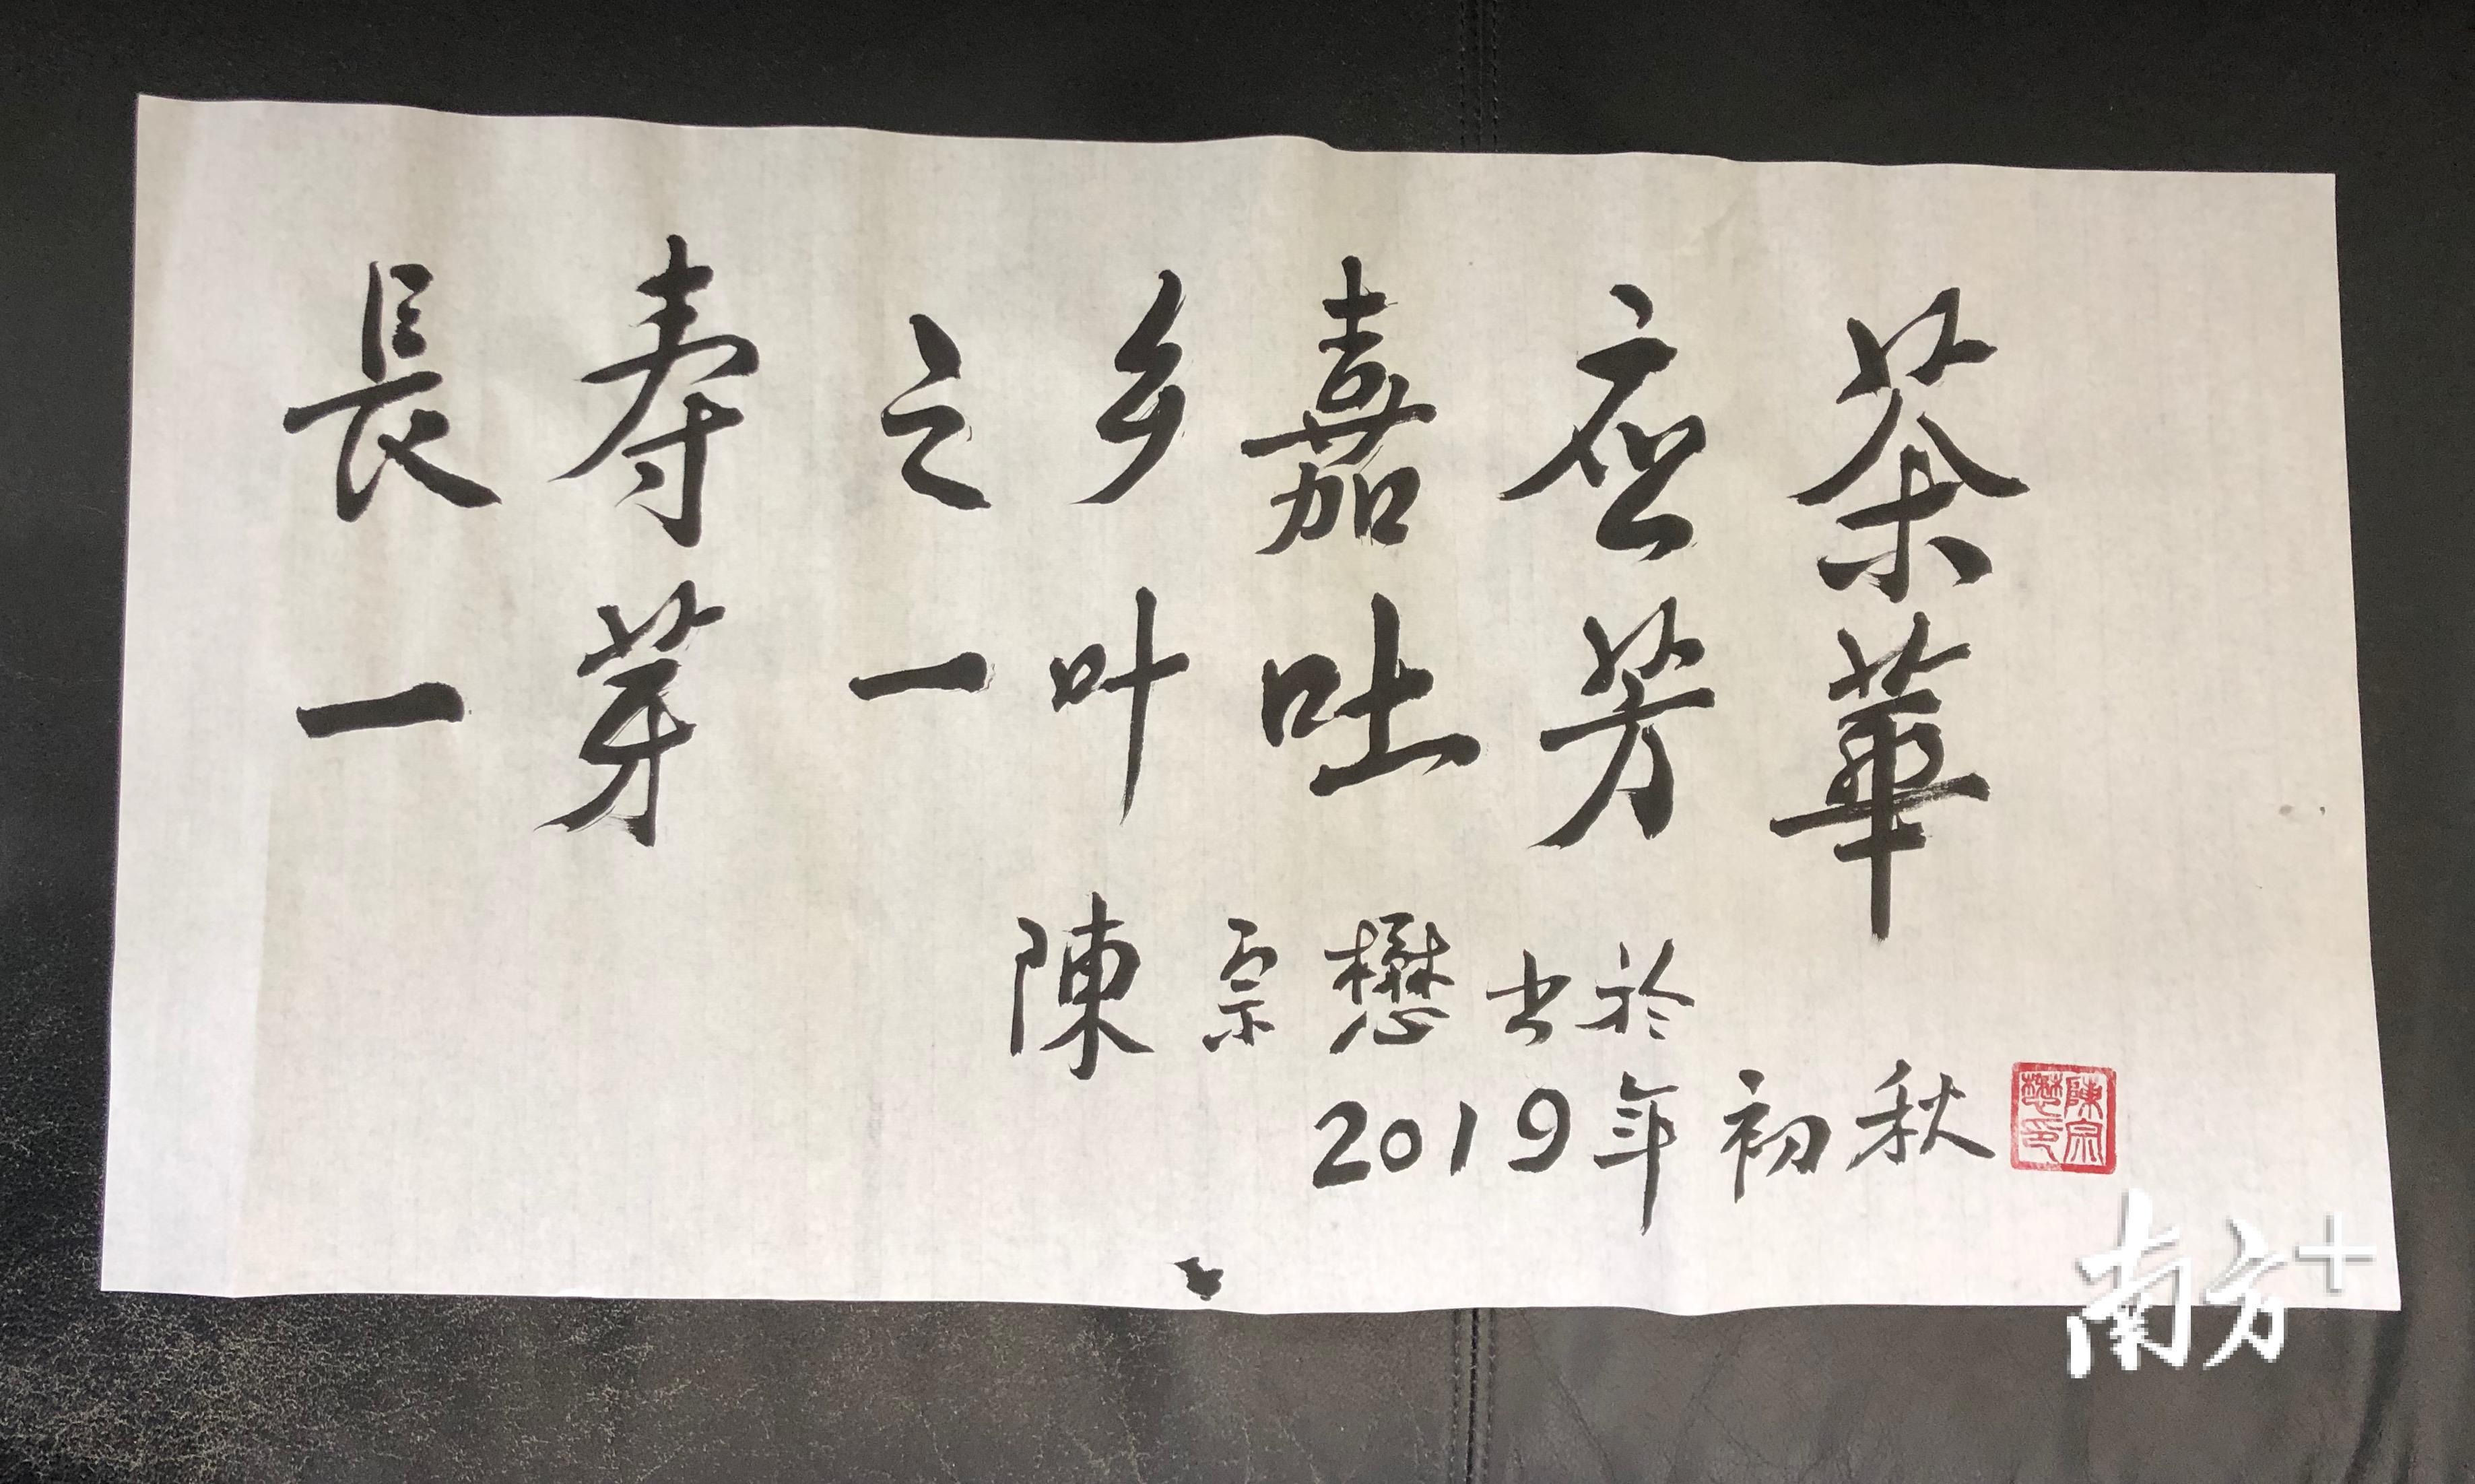 長寿之乡嘉应茶
一芽一叶吐芳華
陳宗懋书於
2019年初秋
陳宗
懋印
南方+